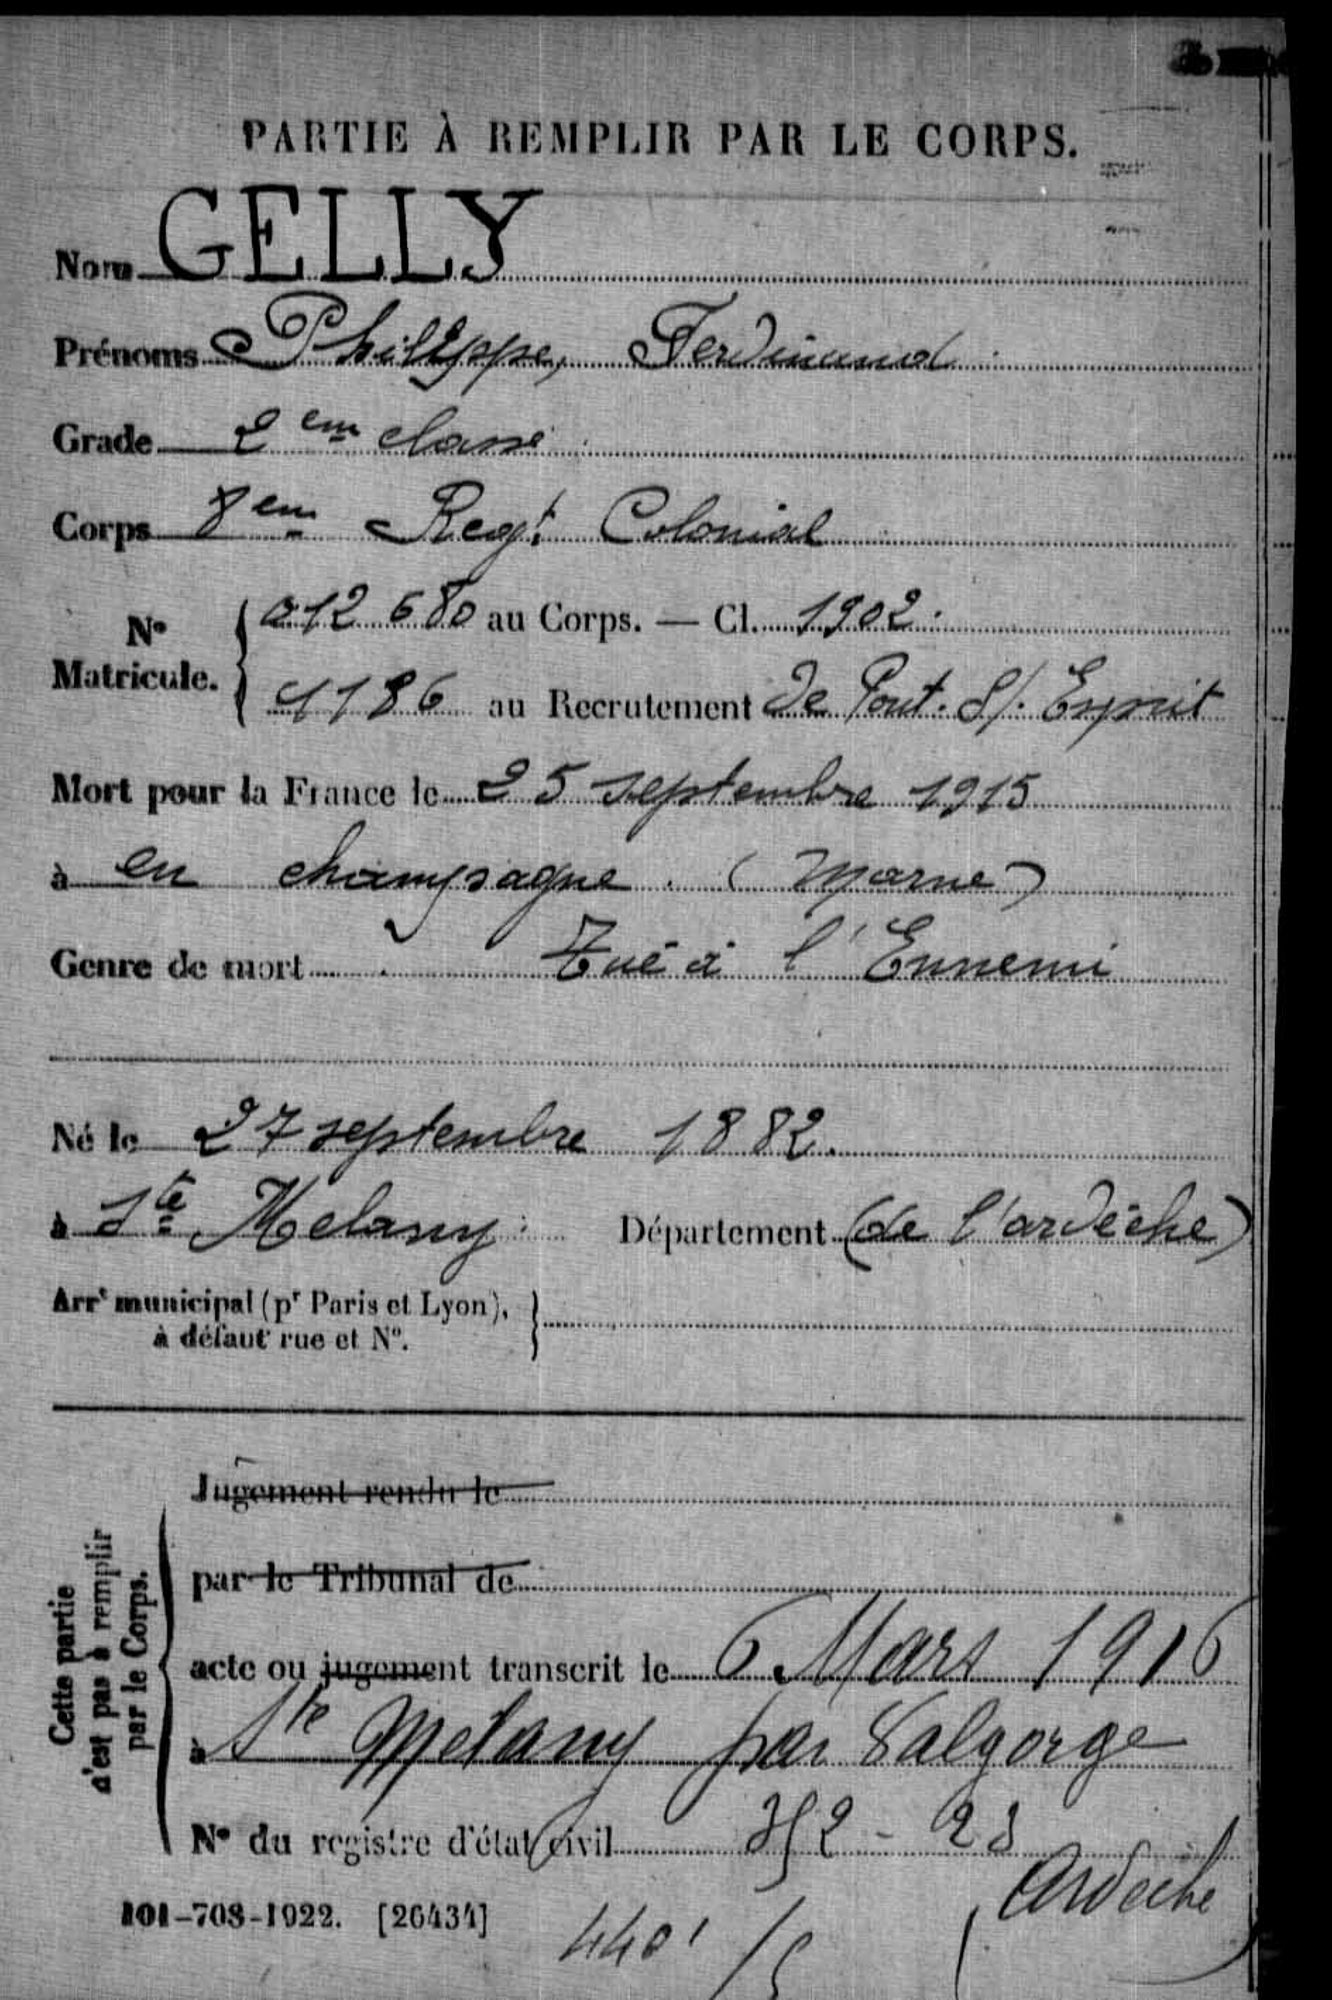 PARTIE À REMPLIR PAR LE CORPS.
Nom GELLY
Prénoms Philippe, Ferdinand
Grade 2 em classe
Corps 8 em Regt Colonial
No Matricule. 012 680 au Corps. — Cl. 1902.
1186 au Recrutement de Pont. S/. Esprit
Mort pour la France le 25 septembre 1915
à en champagne (Marne)
Genre de mort Tué à l'Ennemi
Né le 27 septembre 1882.
à Ste Melany Département (de l'ardèche)
Arrt municipal (pr Paris et Lyon),
à défaut rue et No.
Cette partie
n'est pas à remplir
par le Corps.
Jugement rendu le
par le Tribunal de
acte ou jugement transcrit le 6 Mars 1916
à Ste Melany par Valgorge
No du registre d'état civil
Ardèche
101-708-1922. [26434]
440'